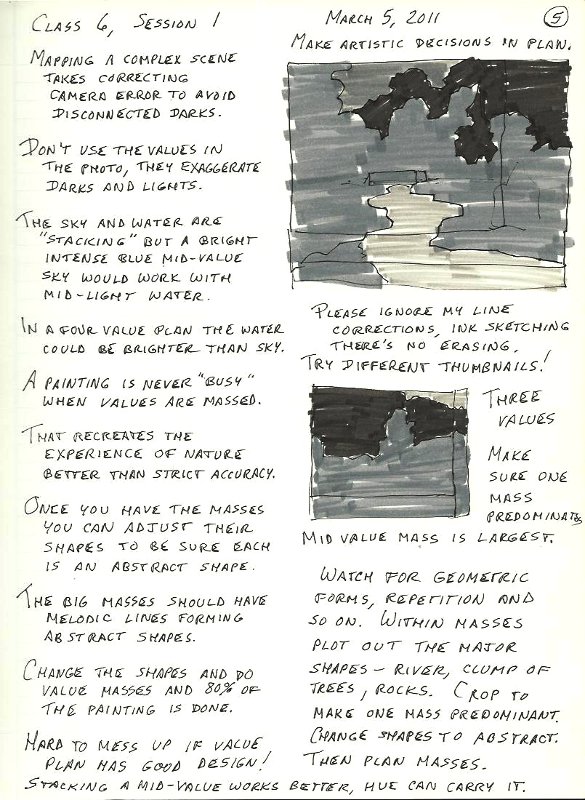 Class 6, Session 1
March 5, 2011
5
Mapping a complex scene
takes correcting
camera error to avoid
disconnected darks.
Don't use the values in
the photo, they exaggerate
darks and lights.
The sky and water are
"stacking" but a bright
intense blue mid-value
sky would work with
mid-light water.
In a four value plan the water
could be brighter than sky.
A painting is never "busy"
when values are massed.
That recreates the
experience of nature
better than strict accuracy.
Once you have the masses
you can adjust their
shapes to be sure each
is an abstract shape.
The big masses should have
melodic lines forming
abstract shapes.
Change the shapes and do
value masses and 80% of
the painting is done.
Hard to mess up if value
plan has good design!
Stacking a mid-value works better, hue can carry it.
Make artistic decisions in plan.
Please ignore my line
corrections, ink sketching
there's no erasing.
Try different thumbnails!
Three
values
Make
sure one
mass
predominates
Mid value mass is largest.
Watch for geometric
forms, repetition and
so on. Within masses
plot out the major
shapes - river, clump of
trees, rocks. Crop to
make one mass predominant.
Change shapes to abstract.
Then plan masses.